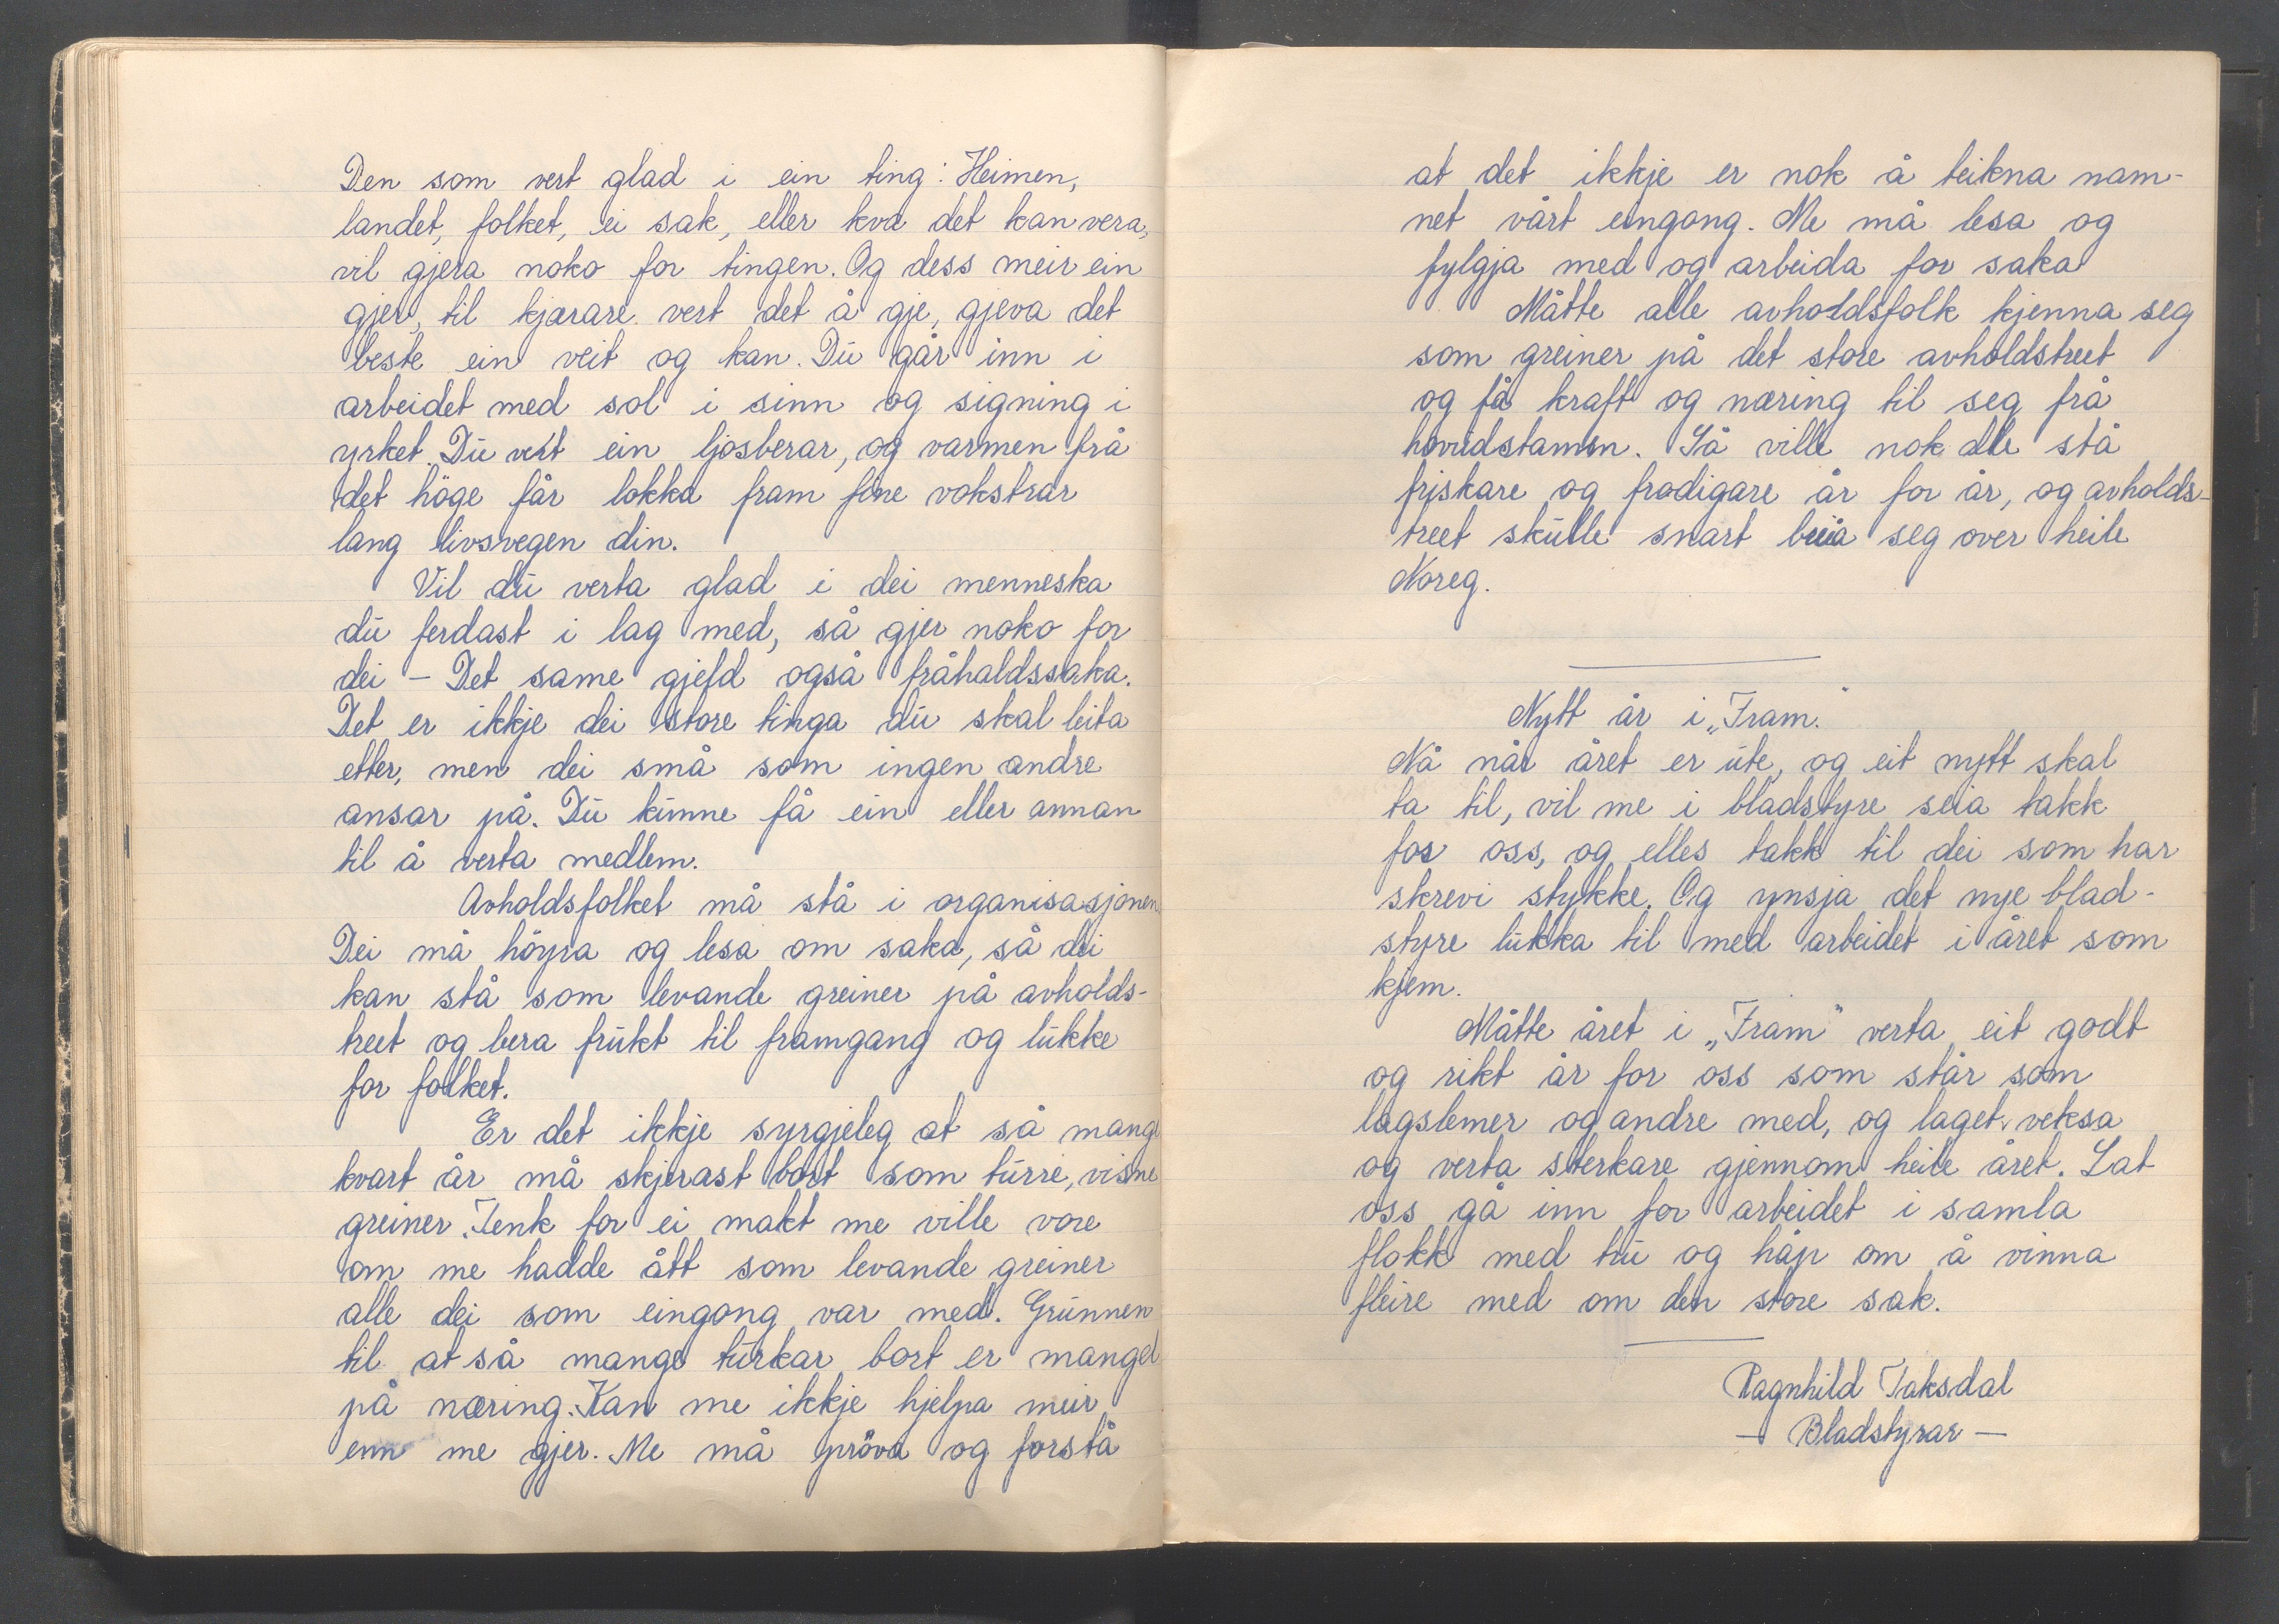 Den som vert glad i ein ting: Heimen,
landet, folket, ei sak, eller kva det kan vera,
vil gjera noko for tingen. Og dess meir ein
gjer, til kjærare vert det å gje, gjeva det
beste ein veit og kan. Du går inn i
arbeidet med sol i sinn og signing i
yrket. Du vert ein ljosberar, og varmen frå
det höge får lokka fram fine vokstrar
lang livsvegen din.
Vil du verta glad i dei menneska
du ferdast i lag med, så gjer noko for
dei - Det same gjeld også fråhaldssaka.
Det er ikkje dei store tinga du skal leita
etter, men dei små som ingen andre
ansar på. Du kunne få ein eller annan
til å verta medlem.
Avholdsfolket må stå i organisasjonen
Dei må höyra og lesa om saka, så dei
kan stå som levande greiner på avholds-
treet og bera frukt til framgang og lukke
for folket.
Er det ikkje syrgjeleg at så mange
kvart år må skjerast bort som turre, visne
greiner. Tenk for ei makt me ville vore
om me hadde ått som levande greiner
alle dei som eingong var med. Grunnen
til at så mange turkar bort er mangel
på næring. Kan me ikkje hjelpa meir
enn me gjer. Me må pröva og forstå
at det ikkje er nok å teikna nam-
net vårt eingong. Me må lesa og
fylgja med og arbeida for saka
Måtte alle avholdsfolk kjenna seg
som greiner på det store avholdstreet
og få kraft og næring til seg frå
hovudstamen. Så ville nok alle stå
friskare og frodigare år for år, og avholds-
treet skulle snart breia seg over heile
Noreg.
Nytt år i „Fram."
Nå når året er ute, og eit nytt skal
ta til, vil me i bladstyre seia takk
for oss, og elles takk til dei som har
skrevi stykke. Og ynsja det nye blad-
styre lukka til med arbeidet i året som
kjem.
Måtte året i „Fram" verta eit godt
og rikt år for oss som står som
lagslemer og andre med, og laget veksa
og verta sterkare gjennom heile året. Lat
oss gå inn for arbeidet i samla
flokk med tru og håp om å vinna
fleire med om den store sak.
Ragnhild Taksdal
- Bladstyrar -